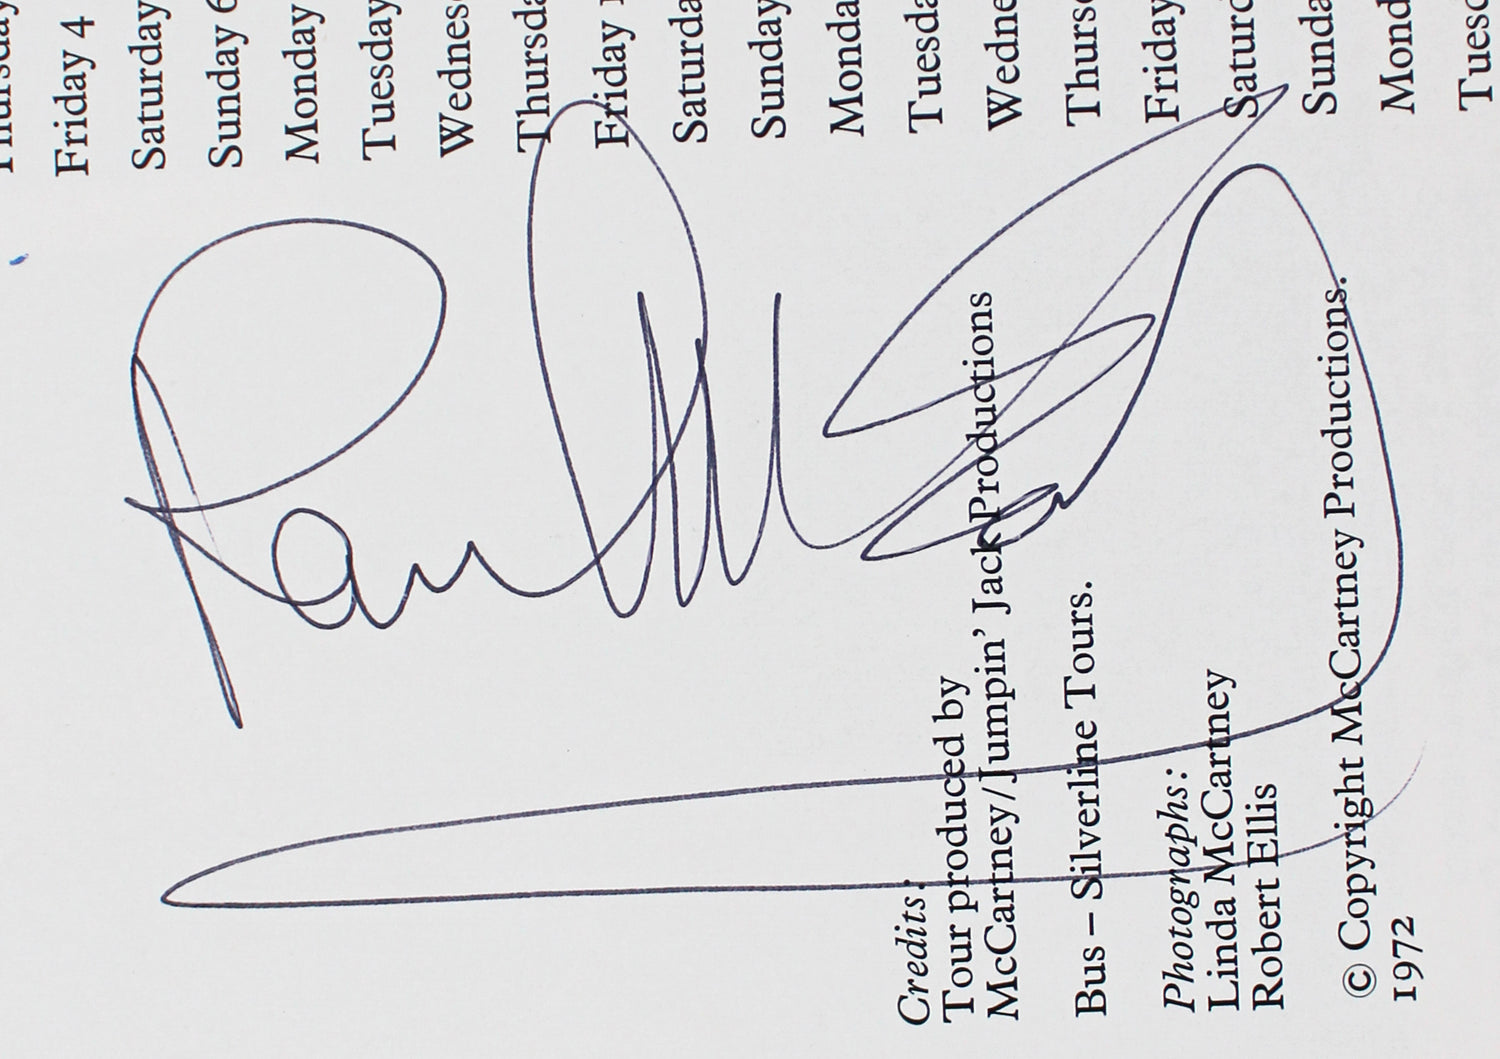 Thursday
Friday 4
Saturday
Sunday 6
Monday
Tuesday
Wednes
Thursda
Friday
Saturda
Sunday
Monda
Tuesda
Wedne
Thurs
Friday
Satur
Sunda
Mond
Tues
Paul
Credits:
Tour produced by
McCartney/Jumpin' Jack Productions
Bus – Silverline Tours.
Photographs:
Linda McCartney
Robert Ellis
© Copyright McCartney Productions.
1972